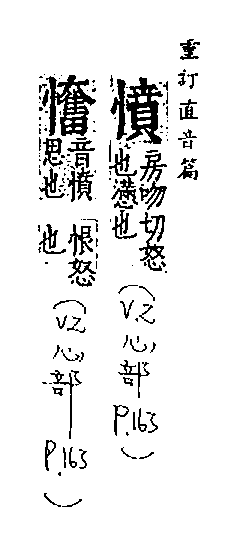 重訂直音篇
憤房吻切怒也懣也(V.2心部P.163)
音憤恨怒也思也(V.2心部P.163)